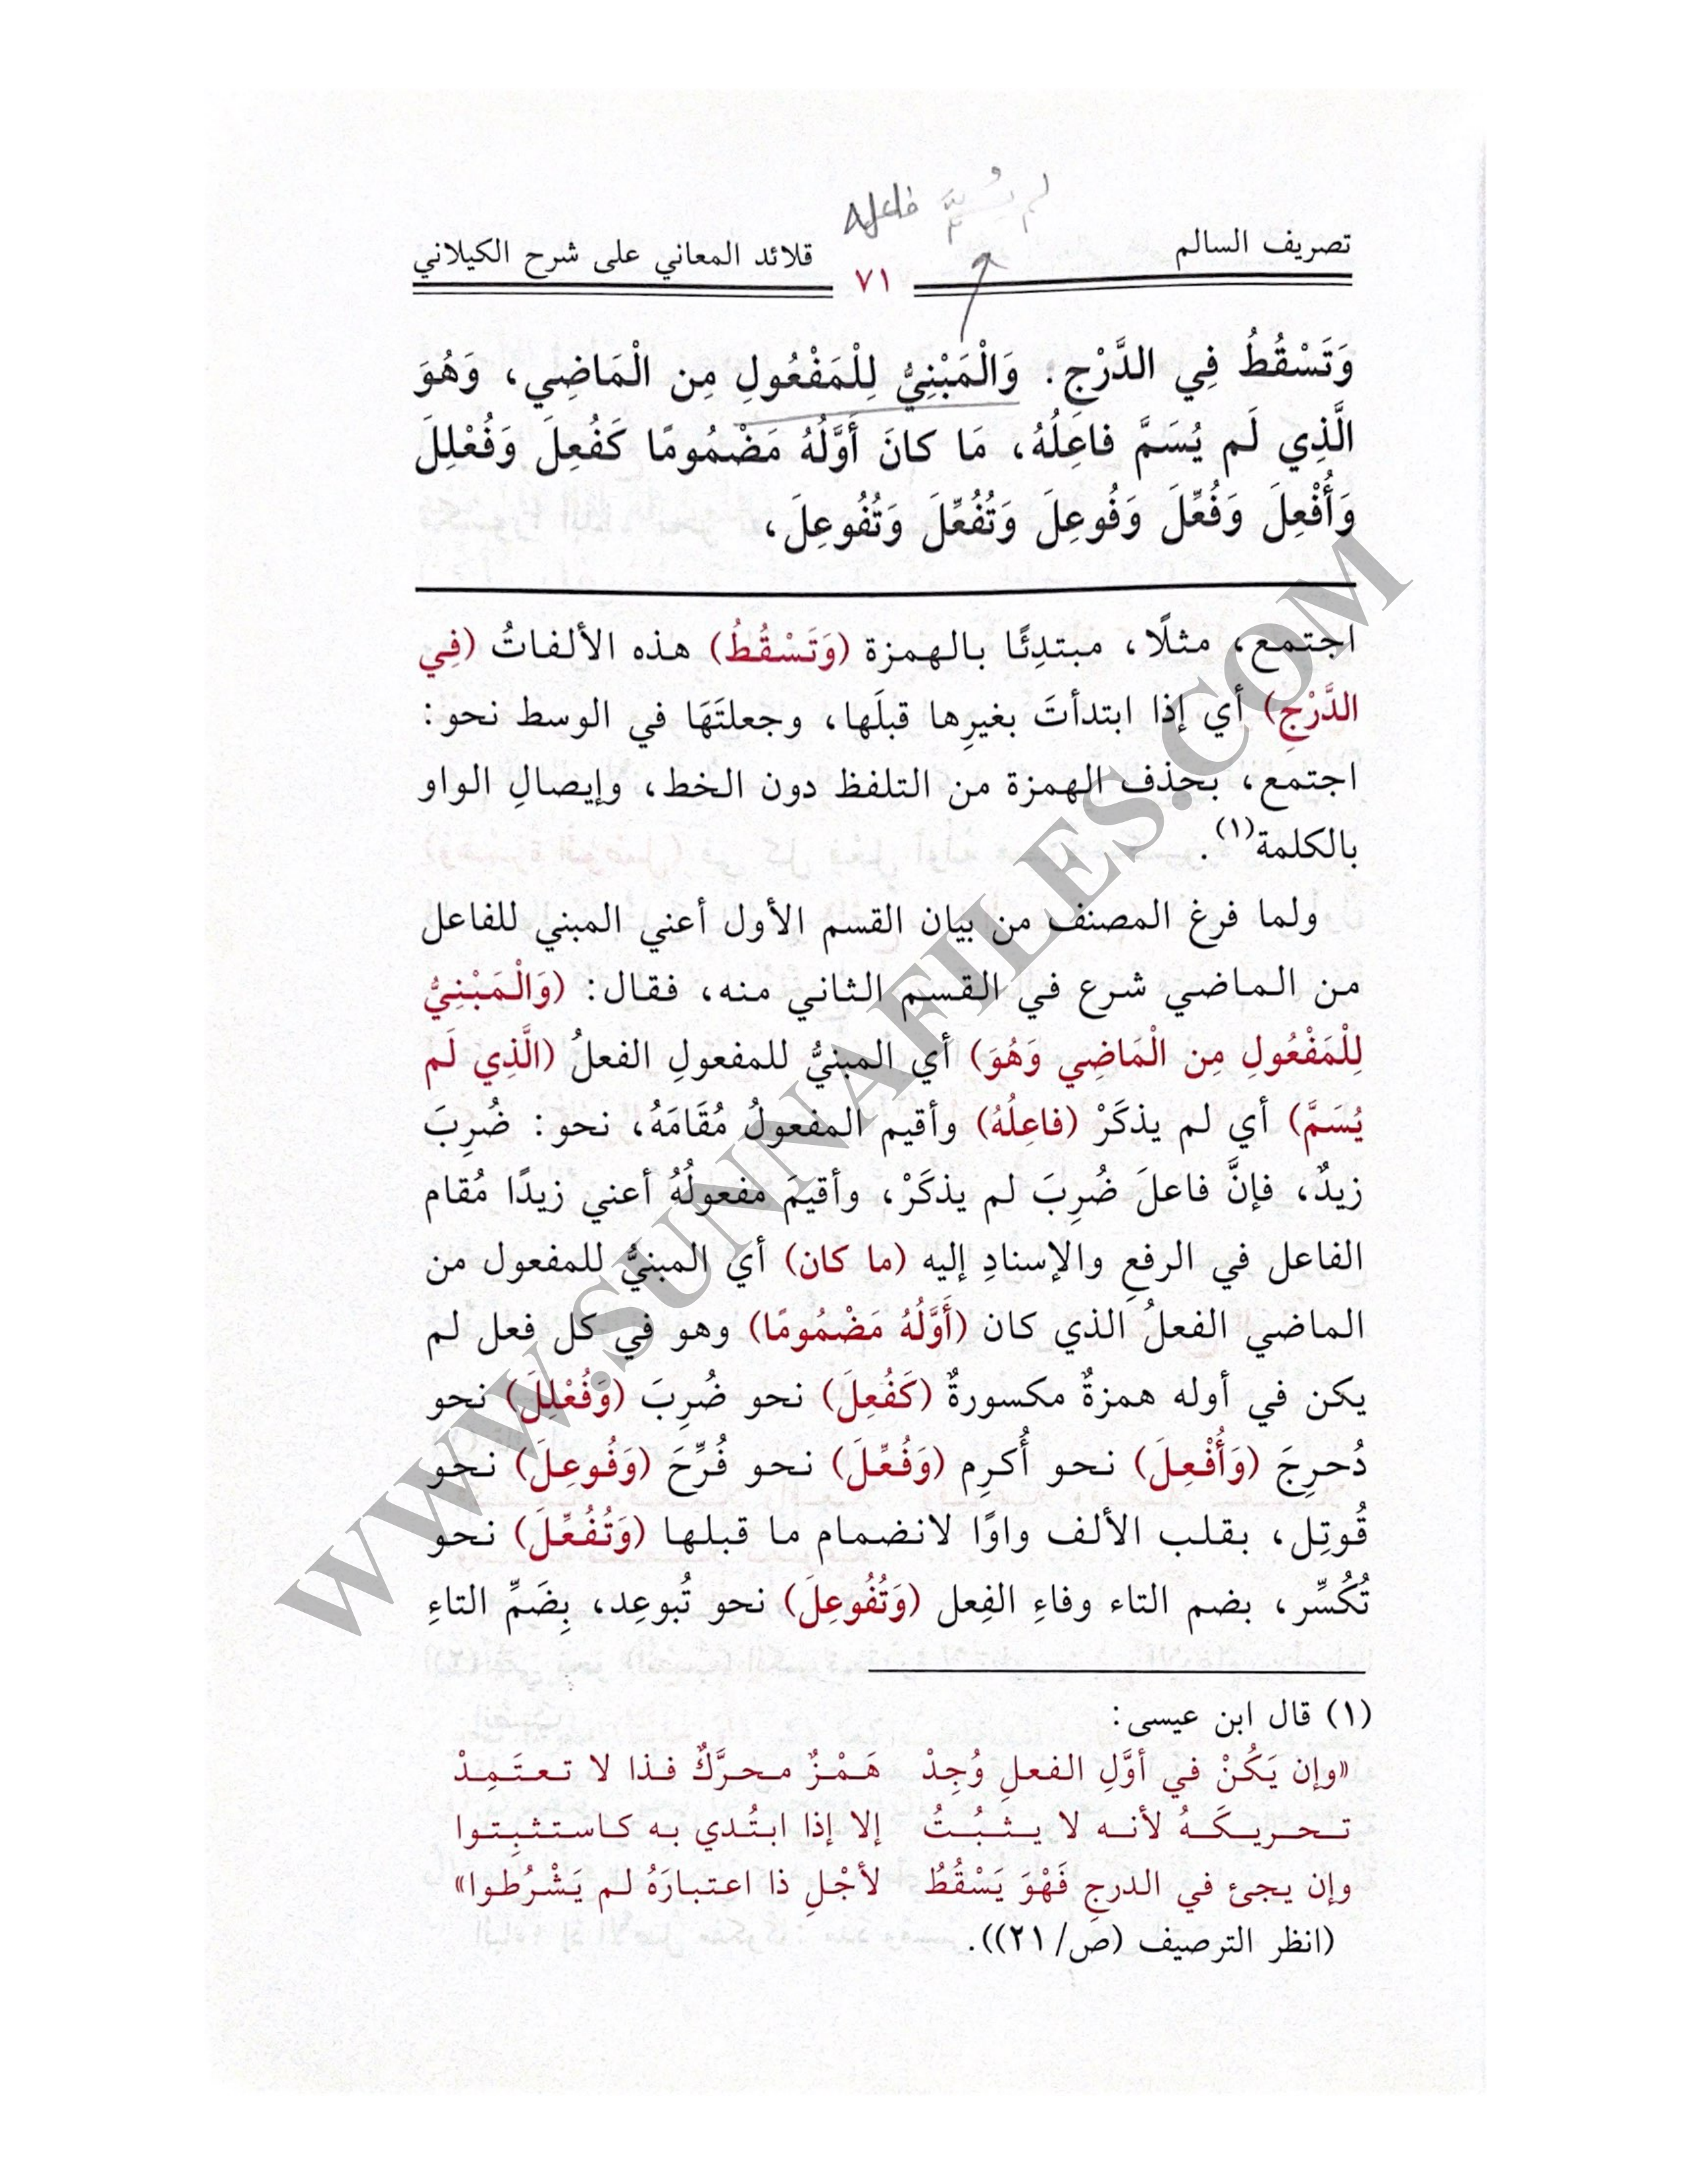 لم يُسَمَّ فاعله
تصريف السالم
٧١
قلائد المعاني على شرح الكيلاني
وَتَسْقُطُ فِي الدَّرْجِ. وَالْمَبْنِيُّ لِلْمَفْعُولِ مِن الْمَاضِي، وَهُوَ
الَّذِي لَم يُسَمَّ فاعِلُهُ، مَا كانَ أَوَّلُهُ مَضْمُومًا كَفُعِلَ وَفُعْلِلَ
وَأُفْعِلَ وَفُعِّلَ وَفُوعِلَ وَتُفُعِّلَ وَتُفُوعِلَ،
اجتمع، مثلًا، مبتدِئًا بالهمزة (وَتَسْقُطُ) هذه الألفاتُ (فِي
الدَّرْجِ) أي إذا ابتدأتَ بغيرِها قبلَها، وجعلتَهَا في الوسط نحو:
اجتمع، بحذف الهمزة من التلفظ دون الخط، وإيصالِ الواو
بالكلمة(١).
ولما فرغ المصنف من بيان القسم الأول أعني المبني للفاعل
من الماضي شرع في القسم الثاني منه، فقال: (وَالْمَبْنِيُّ
لِلْمَفْعُولِ مِن الْمَاضِي وَهُوَ) أي المبنيُّ للمفعولِ الفعلُ (الَّذِي لَم
يُسَمَّ) أي لم يذكَرْ (فاعِلُهُ) وأقيم المفعولُ مُقَامَهُ، نحو: ضُرِبَ
زيدٌ، فإنَّ فاعلَ ضُرِبَ لم يذكَرْ، وأقيمَ مفعولُهُ أعني زيدًا مُقام
الفاعل في الرفعِ والإسنادِ إليه (ما كان) أي المبنيُّ للمفعول من
الماضي الفعلُ الذي كان (أَوَّلُهُ مَضْمُومًا) وهو في كل فعل لم
يكن في أوله همزةٌ مكسورةٌ (كَفُعِلَ) نحو ضُرِبَ (وَفُعْلِلَ) نحو
دُحرِجَ (وَأُفْعِلَ) نحو أُكرِم (وَفُعِّلَ) نحو فُرِّحَ (وَفُوعِلَ) نحو
قُوتِل، بقلب الألف واوًا لانضمام ما قبلها (وَتُفُعِّلَ) نحو
تُكُسِّر، بضم التاء وفاءِ الفِعل (وَتُفُوعِلَ) نحو تُبوعِد، بِضَمِّ التاءِ
(١) قال ابن عيسى:
«وإن يَكُنْ في أوَّلِ الفعلِ وُجِدْ هَمْزٌ محرَّكٌ فذا لا تعتَمِدْ
تحريكَهُ لأنه لا يثبُتُ إلا إذا ابتُدي به كاستثبِتوا
وإن يجئ في الدرجِ فَهْوَ يَسْقُطُ لأجْلِ ذا اعتبارَهُ لم يَشْرُطوا»
(انظر الترصيف (ص/٢١)).
WWW.SUNNAFILES.COM